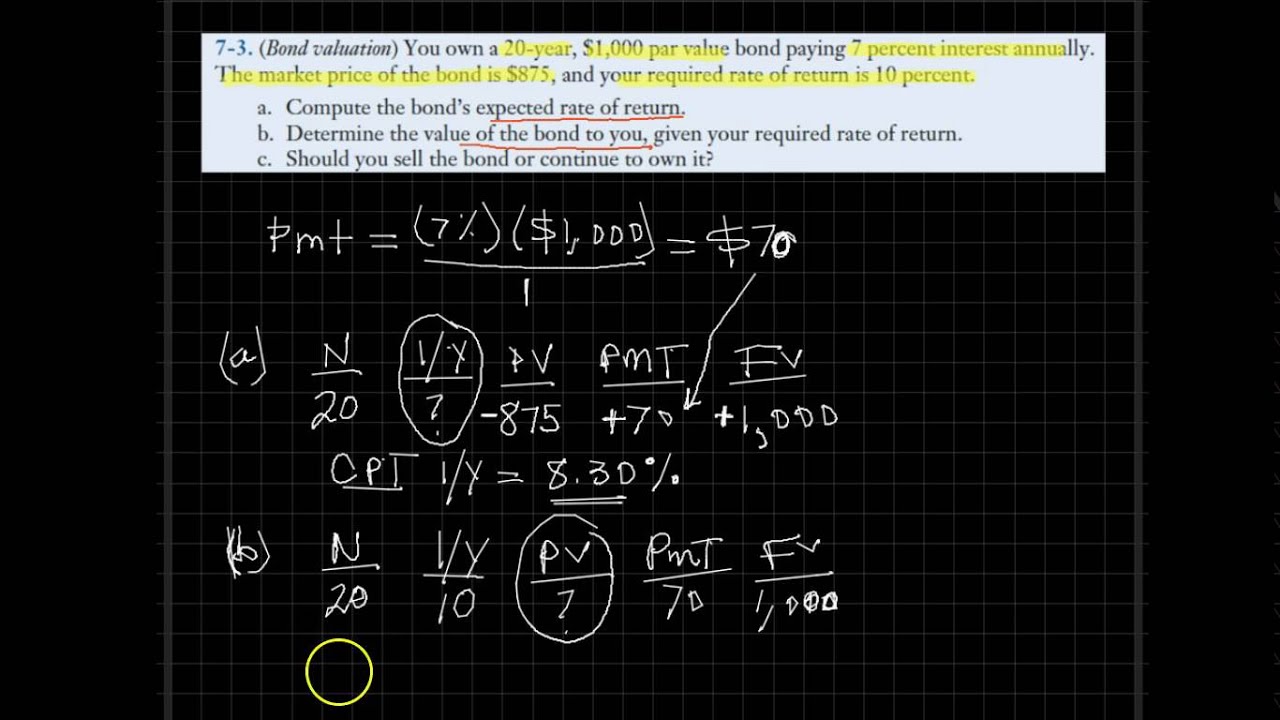 7-3. (Bond valuation) You own a 20-year, $1,000 par value bond paying 7 percent interest annually.
The market price of the bond is $875, and your required rate of return is 10 percent.
a. Compute the bond's expected rate of return.
b. Determine the value of the bond to you, given your required rate of return.
c. Should you sell the bond or continue to own it?
Pmt = (7%) ($1,000) = $70
1
(a) N I/Y PV PMT FV
20 ? -875 +70 +1,000
CPT I/Y = 8.30%
(b) N I/Y PV PMT FV
20 10 ? 70 1,000